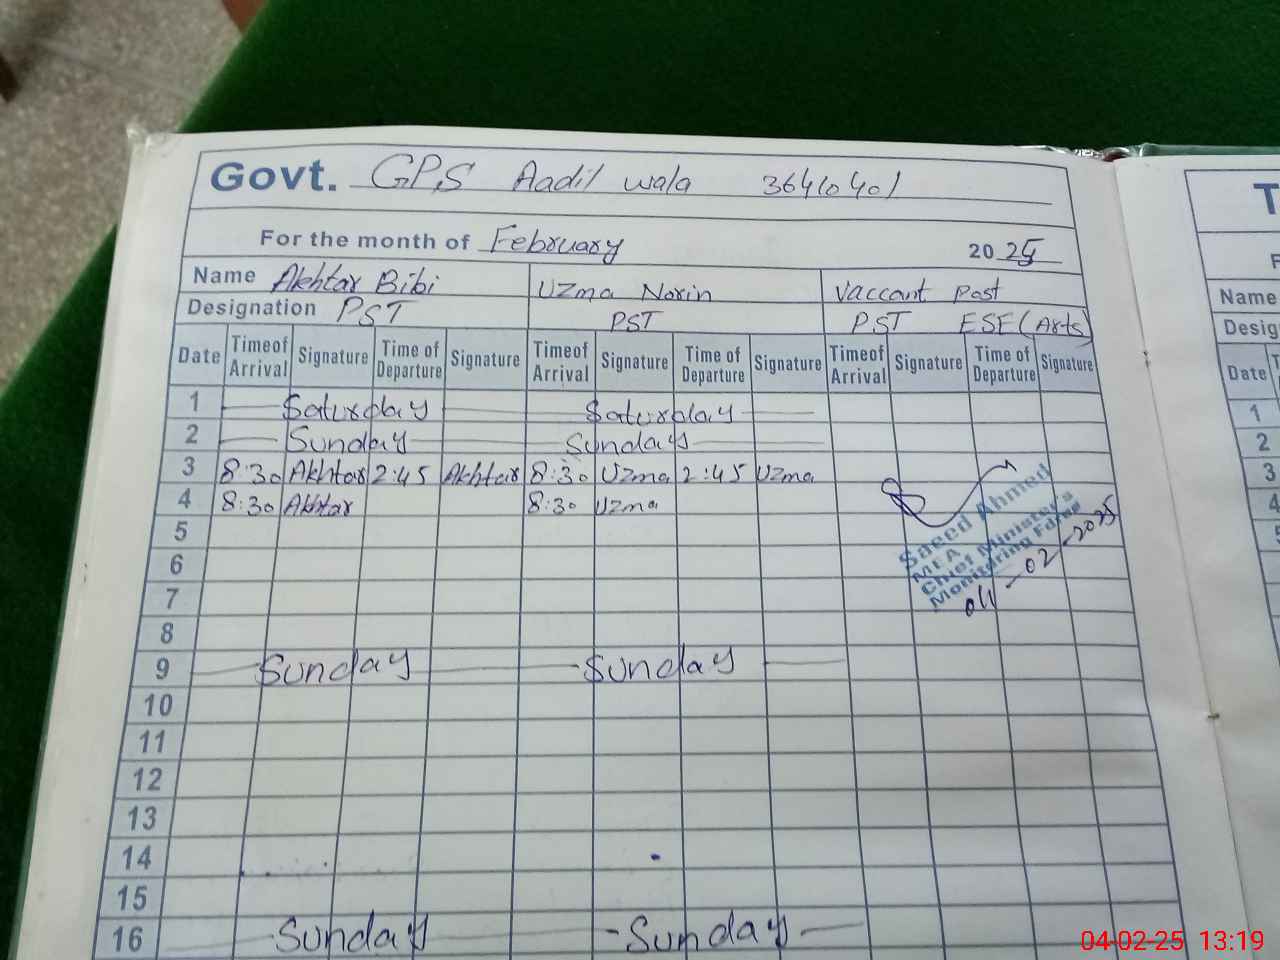 Govt. GPS Aadil wala 36410401
For the month of February 2025
Name Akhtar Bibi Uzma Norin Vaccant Post
Designation PST PST PST ESE (Arts)
Date Timeof Arrival Signature Time of Departure Signature Timeof Arrival Signature Time of Departure Signature Timeof Arrival Signature Time of Departure Signature
1 Saturday Saturday
2 Sunday Sunday
3 8:30 Akhtar 2:45 Akhtar 8:30 Uzma 2:45 Uzma
4 8:30 Akhtar 8:30 Uzma
5
6
7
8
9 Sunday Sunday
10
11
12
13
14
15
16 Sunday Sunday
Saeed Ahmed
MEA
Chief Minister's
Monitoring Force
04-02-2025
T
F
Name
Desig
Date
1
2
3
4
5
04-02-25 13:19